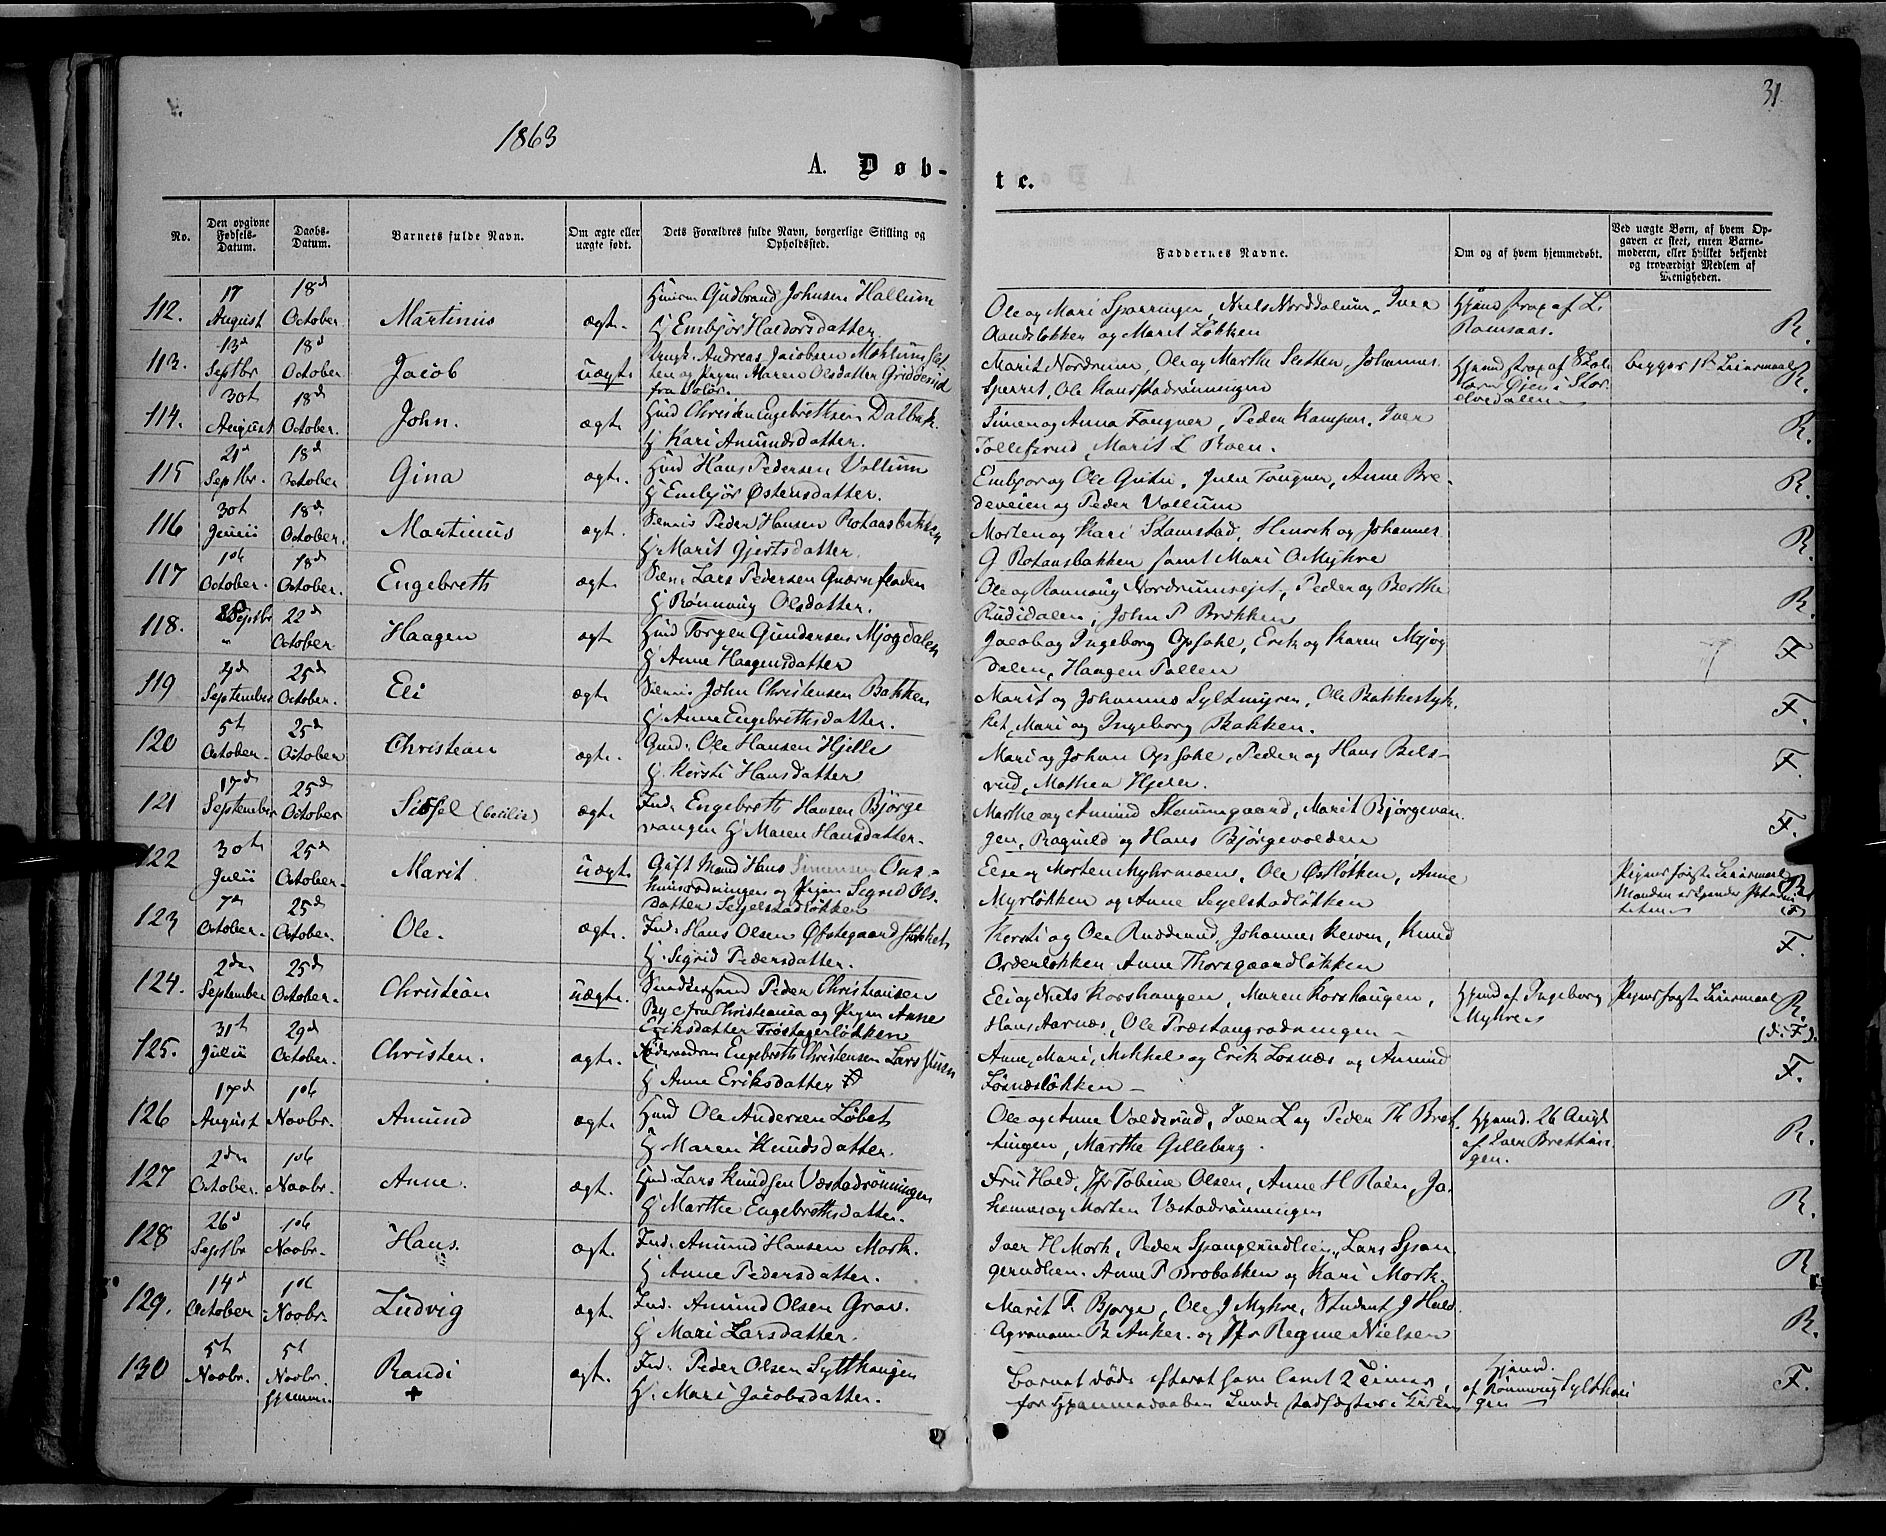 31.
1863
A. Døb-
te.
No.
Den opgivne Fødsels-Datum.
Daabs-Datum.
Barnets fulde Navn.
Om ægte eller uægte født.
Dets Forældres fulde Navn, borgerlige Stilling og Opholdssted.
Faddernes Navne.
Om og af hvem hjemmedøbt.
Ved uægte Børn, af hvem Opgaven er skeet, enten Barnemoderen, eller hvilket bekjendt og troværdigt Medlem af Menigheden.
112. 17 August 18d October Martinus ægt. Gudbrand Johnsen Hallum
H Embjør Haldorsdatter
Ole og Mari Sparringen, Niels Norddalum, Iver
Aandsløkken og Marit Løkken
Hjemd strax af L. Ramsaas. R.
113. 13d Septbr 18d October Jacob uægt. Ungk. Andreas Jacobsen
ten og Pigen Maren Olsdatter
fra Solør.
Marit Nordrum, Ole og Marthe Sletten, Johannes
Sperret, Ole Hansstadrønningen
Hjemd strax af
begges 1ste Leiermaal R.
114. 30t August 18d October. John. ægt. Hmd Christen Engebrethsen Dalbak.
H Kari Amundsdatter.
Simen og Anna Fougner, Peder Kampen, Iver
Tollefsrud, Marit L Roen. R.
115 21d Septbr. 18d October Gina ægt. Hmd Hans Pedersen Vollum
H Embjør Østensdatter.
Embjør og Ole Gutu, Julie Fougner, Anne Bre-
deveien og Peder Vollum R.
116 30t Junii 18d October. Martinus ægt. Peder Hansen Rotaasbakken
H. Marit Gjertsdatter.
Morten og Kari Stamstad, Henrik og Johannes
G Rotaasbakken samt Mari O Myhre R.
117 1ste October. 18d October. Engebreth ægt. Lars Pedersen Quærnfloden
H Rønnoug Olsdatter.
Ole og Rønnoug Nordrumsejet, Peder og Berthe
Rudidalen, John P Brekken R.
118. Septbr 22d October Haagen ægt Hmd Torger Gundersen Mjogdalen
H Anne Haagensdatter
Jacob og Ingeborg Opsahl, Erik og Karen Mjog
dalen, Haagen Tollen F
119 September 25d October. Eli ægt John Christensen Bakken
H Anne Engebrethsdatter.
Marit og Johannes Syltmyren, Ole Bakkestyk-
ket, Mari og Ingeborg Bakken. F.
120 5t October. 25d October Christian ægt. Gmd. Ole Hansen Hjelle
H. Kersti Hansdatter
Mari og Johan Opsahl, Peder og Hans Bels-
rud, Mathea Hjelle. F.
121 17d September 25d October Sissel (Cecilie) ægt. Ind. Engebreth Hansen Bjørge
vangen H Maren Hansdatter.
Marthe og Amund Stenumgaard, Marit Bjørgevan
gen, Ragnild og Hans Bjørgevolden F.
122 30te Julii 25d October. Marit uægt. Gift Mand Hans Simensen
og Pigen Sigrid Ols-
datter Segelstadløkken
Else og Morten Myhrmoen, Ole Østløkken, Anne
Myrløkken og Anne Segelstadløkken
Pigens første Leiermaal
123 7de October. 25d October. Ole. ægt. Ind. Hans Olsen Øfstegaard
H. Sigrid Pedersdatter.
Kersti og Ole Rudsrud, Johannes Kewen, Knud
Orderløkken, Anne Thorsgaardløkken F.
124. 2den September 25d October. Christian uægte. Peder Christiansen
Bye fra Christiania og Pigen Anne
Eriksdatter Frostagerløkken
Eli og Niels Korshaugen, Maren Korshaugen,
Hans Aarnæs, Ole Præstangrødningen
Hjemd af Ingeborg Myhre
Pigens første Leiermaal R. (d. F).
125. 31t Julii 29d October. Christen. ægt. Engebreth Christensen Larsstuen
H Anne Eriksdatter
Anne, Mari, Mikkel og Erik Losnæs og Amund
Losnæsløkken F.
126 17d August 1ste Novbr. Amund ægt. Hmd Ole Andersen Løbet
H Maren Knudsdatter.
Ole og Anne Voldsrud, Iver L og Peder Th Bret-
tingen, Marthe Gilleberg.
Hjemd. 26 Augt af Iver Brettin
gen. R.
127 2den October. 1ste Novbr. Anne. ægt. Hmd. Lars Knudsen Væstadrønningen
H Marthe Engebrethsdatter.
Fru Hold, Jfr Tobine Olsen, Anne H Roen, Jo-
hannes og Morten Væstadrønningen R.
128 26d Septbr 1ste Novbr. Hans. ægt. Ind. Amund Hansen Mork.
H Anne Pedersdatter.
Iver H Mork, Peder Spangerudlien, Lars Span
gerudlien. Anne P Brobakken og Kari Mork. R
129. 14d October 1ste Novbr. Ludvig ægt Ind. Amund Olsen Grav.
H Mari Larsdatter.
Marit F. Bjørge, Ole J Myhre, Student J Hold.
Agronome B Anker. og Jfr Regine Nielsen R.
130 5t Novbr. 5t Novbr. Hjemme. Randi + ægt. Ind. Peder Olsen Sylthaugen
H. Mari Jacobsdatter.
Barnet døde efterat have levet 2 Timer,
før Hjemmedaaben kunde stadfæstes i Kirken
Hjemd. af Rønnoug Sylthau
gen F.